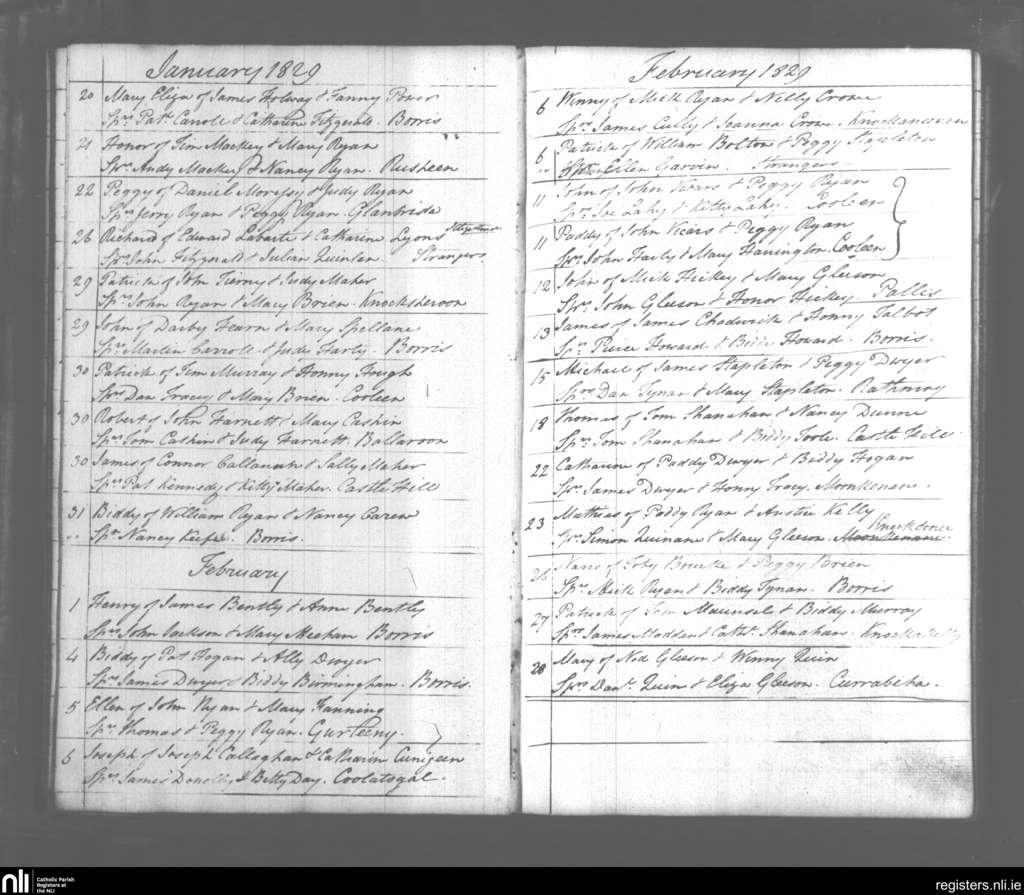 January 1829
20 Mary Eliza of James Holway & Fanny Power
Sprs Patk Carroll & Catharine Fitzgerald. Borris
21 Honor of Tim Mackey & Mary Ryan
Sprs Andy Mackey & Nancy Ryan. Rusheen
22 Peggy of Daniel Morissy & Judy Ryan
Sprs Jerry Ryan & Peggy Ryan. Glanbrida
26 Richard of Edward Labarte & Catharine Lyons
Sprs John Fitzgerald & Julian Quinlan. Strangers
29 Patrick of John Tierny & Judy Maher
Sprs John Ryan & Mary Brien. Knocksheroon
29 John of Darby Hearn & Mary Spellane
Sprs Martin Carroll & Judy Harty. Borris
30 Patrick of Tim Murray & Honny Hough
Sprs Dan Tracey & Mary Brien. Cooleen
30 Robert of John Harnett & Mary Cashin
Sprs Tom Cashin & Judy Harnett. Ballaroon
30 James of Connor Callanan & Sally Maher
Sprs Pat Kennedy & Kitty Maher. Castle Hill
31 Biddy of William Ryan & Nancy Caren
.. Spr Nancy Keefe. Borris.
February
1 Henry of James Bently & Anne Bently
Sprs John Jackson & Mary Meehan Borris
4 Biddy of Pat Hogan & Ally Dwyer
Sprs James Dwyer & Biddy Birmingham. Borris.
5 Ellen of John Ryan & Mary Fanning
Sprs Thomas & Peggy Ryan. Gurteeny.
6 Joseph of Joseph Callaghan & Catharin Cunigeen
Sprs James Donolly & Betty Day. Coolatogal.
February 1829
6 Winny of Mick Ryan & Nelly Crowe
Sprs James Cully & Joanna Crowe. Knockancoran
6 Patrick of William Bolton & Peggy Stapleton
.. Ellen Garvin. Strangers
11 John of John Vicars & Peggy Ryan
Sprs Joe Lahy & Kitty Lahy. Cooleen
11 Paddy of John Vicars & Peggy Ryan
Sprs John Harty & Mary Hanington. Cooleen
12 John of Mick Hickey & Mary Gleeson
Sprs John Gleeson & Honor Hickey. Pallis
13 James of James Chadwick & Honny Talbot
Sprs Peirce Howard & Biddy Howard. Borris.
15 Michael of James Stapleton & Peggy Dwyer
Sprs Dan Tynan & Mary Stapleton. Rathmoy
18 Thomas of Tom Shanahan & Nancy Dunne
Sprs Tom Shanahan & Biddy Toole. Castle Hill.
22 Catharine of Paddy Dwyer & Biddy Hogan
Sprs James Dwyer & Honny Tracy. Moonkenane.
23 Mathias of Paddy Ryan & Anstie Kelly
Sprs Simon Quinane & Mary Gleeson. Moonkenane.
Nanc of Toby Bourke & Peggy Brien
Sprs Mick Ryan & Biddy Tynan. Borris
27 Patrick of Tom Maunsel & Biddy Murray
Sprs James Madden & Cathe Shanahan. Knockakelly
28 Mary of Ned Gleeson & Winny Quin
Sprs Danl Quin & Eliza Gleeson. Currabeha.
nli
Catholic Parish
Registers at
the NLI
registers.nli.ie